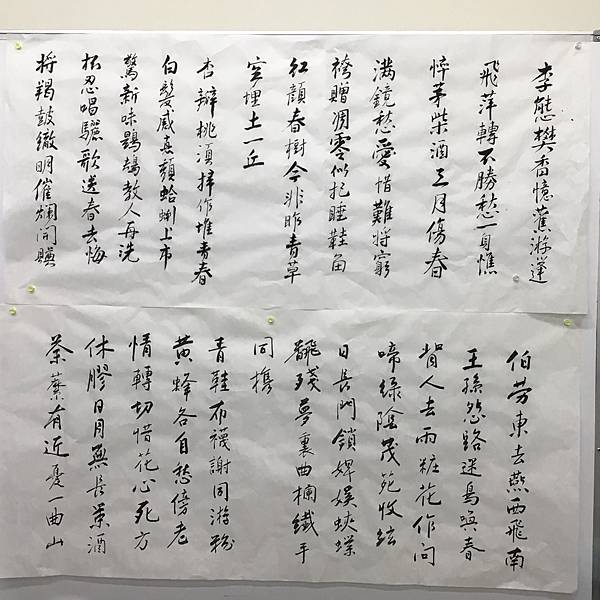 李態樊香憶舊游蓬
飛萍轉不勝愁一身憔
悴茅柴酒三月傷春
滿鏡愁愛惜難將窮
袴贈凋零似把睡鞋留
紅顏春樹今非昨青草
空埋土一丘
杏瓣桃須掃作堆青春
白髮感衰頹蛤蜊上市
驚新味鷤鴂教人再洗
杯忍唱驪歌送春去悔
將羯鼓徹明催爛開賺
伯勞東去燕西飛南
王孫怨路迷鳥喚春
背人去雨粧花作問
啼綠陰茂苑收弦
日長門鎖婢娛蛺蝶
翻殘夢裏曲欄纖手
同攜
青鞋布襪謝同游粉
黃蜂各自愁傍老
情轉切惜花心死方
休膠日月無長策酒
荼蘼有近憂一曲山